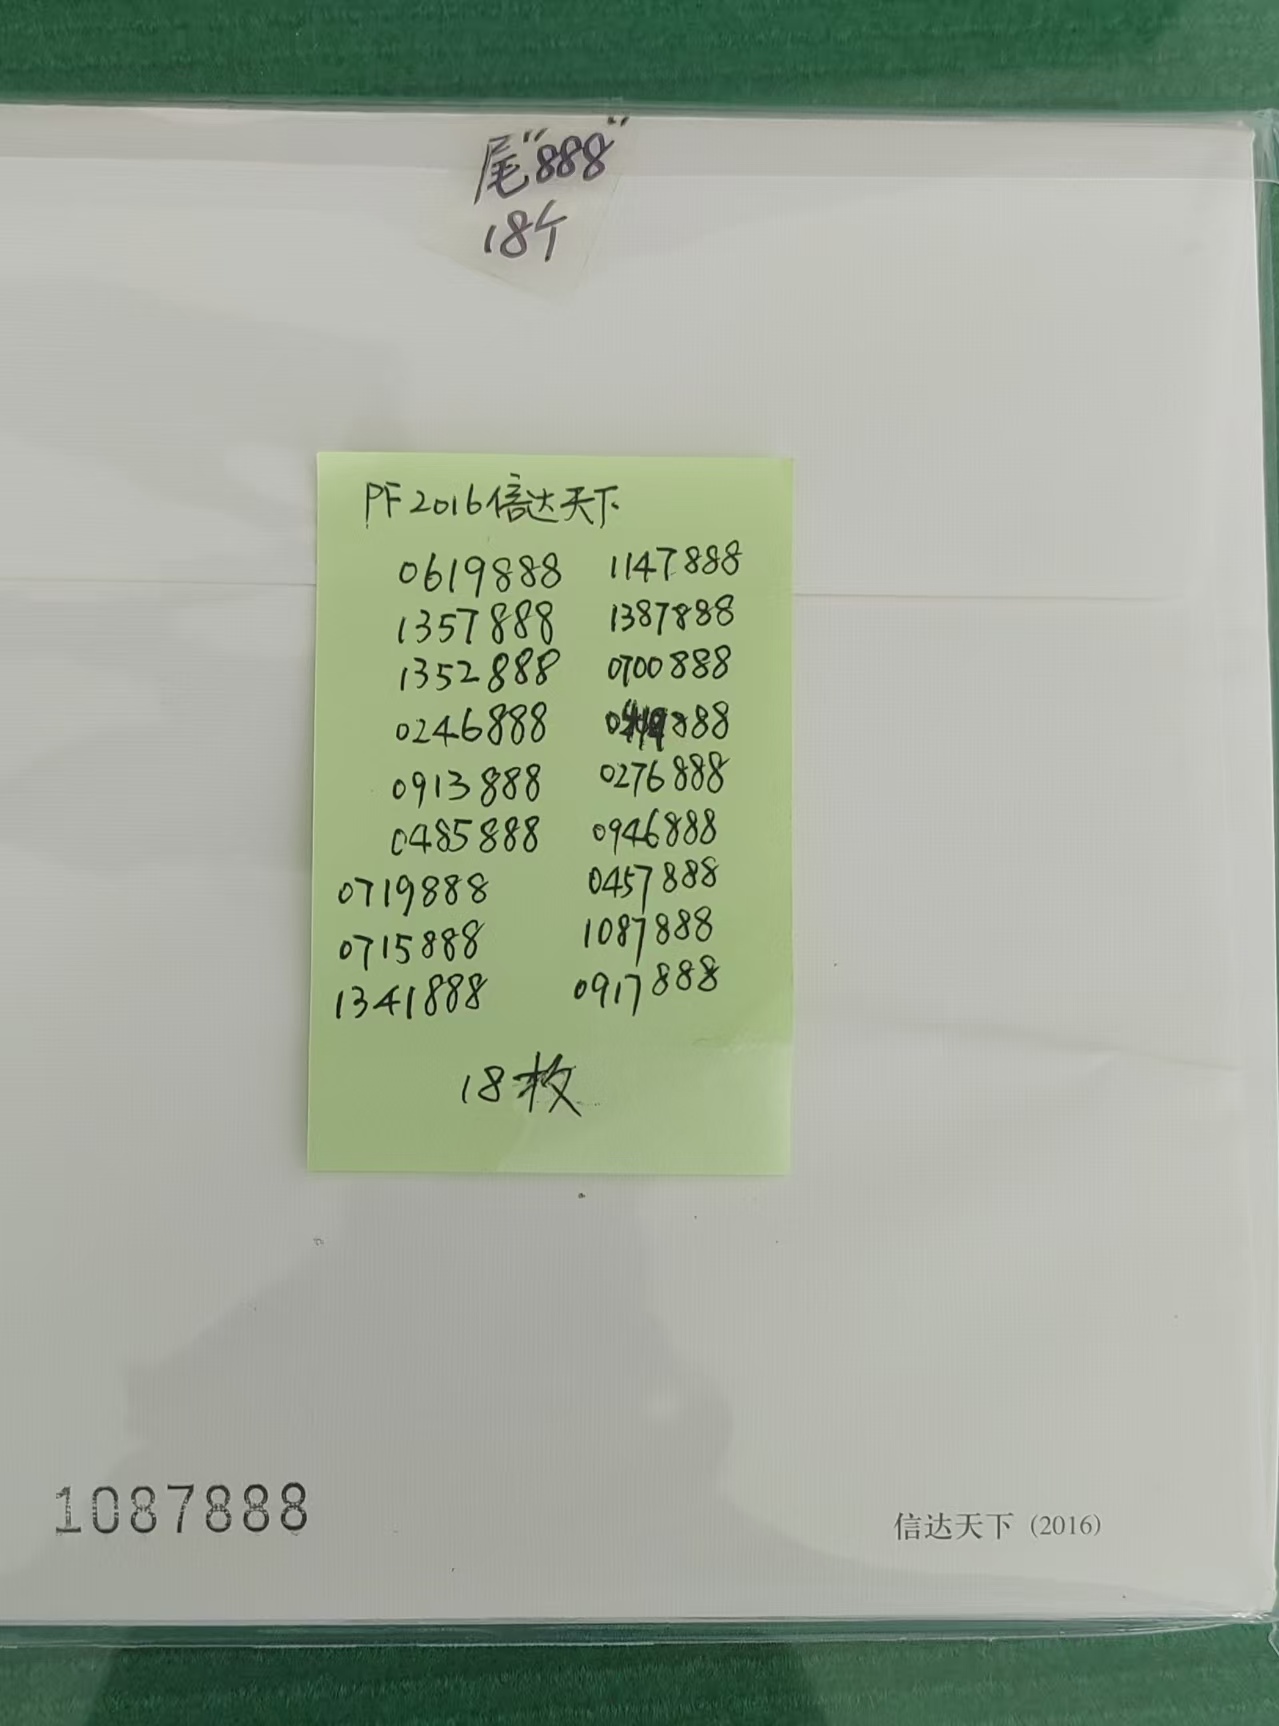 尾"888"
18个
PF2016信达天下
0619888 1147888
1357888 1387888
1352888 0700888
0246888
0913888 0276888
0485888 0946888
0719888 0457888
0715888 1087888
1341888 0917888
18枚
1087888
信达天下 (2016)